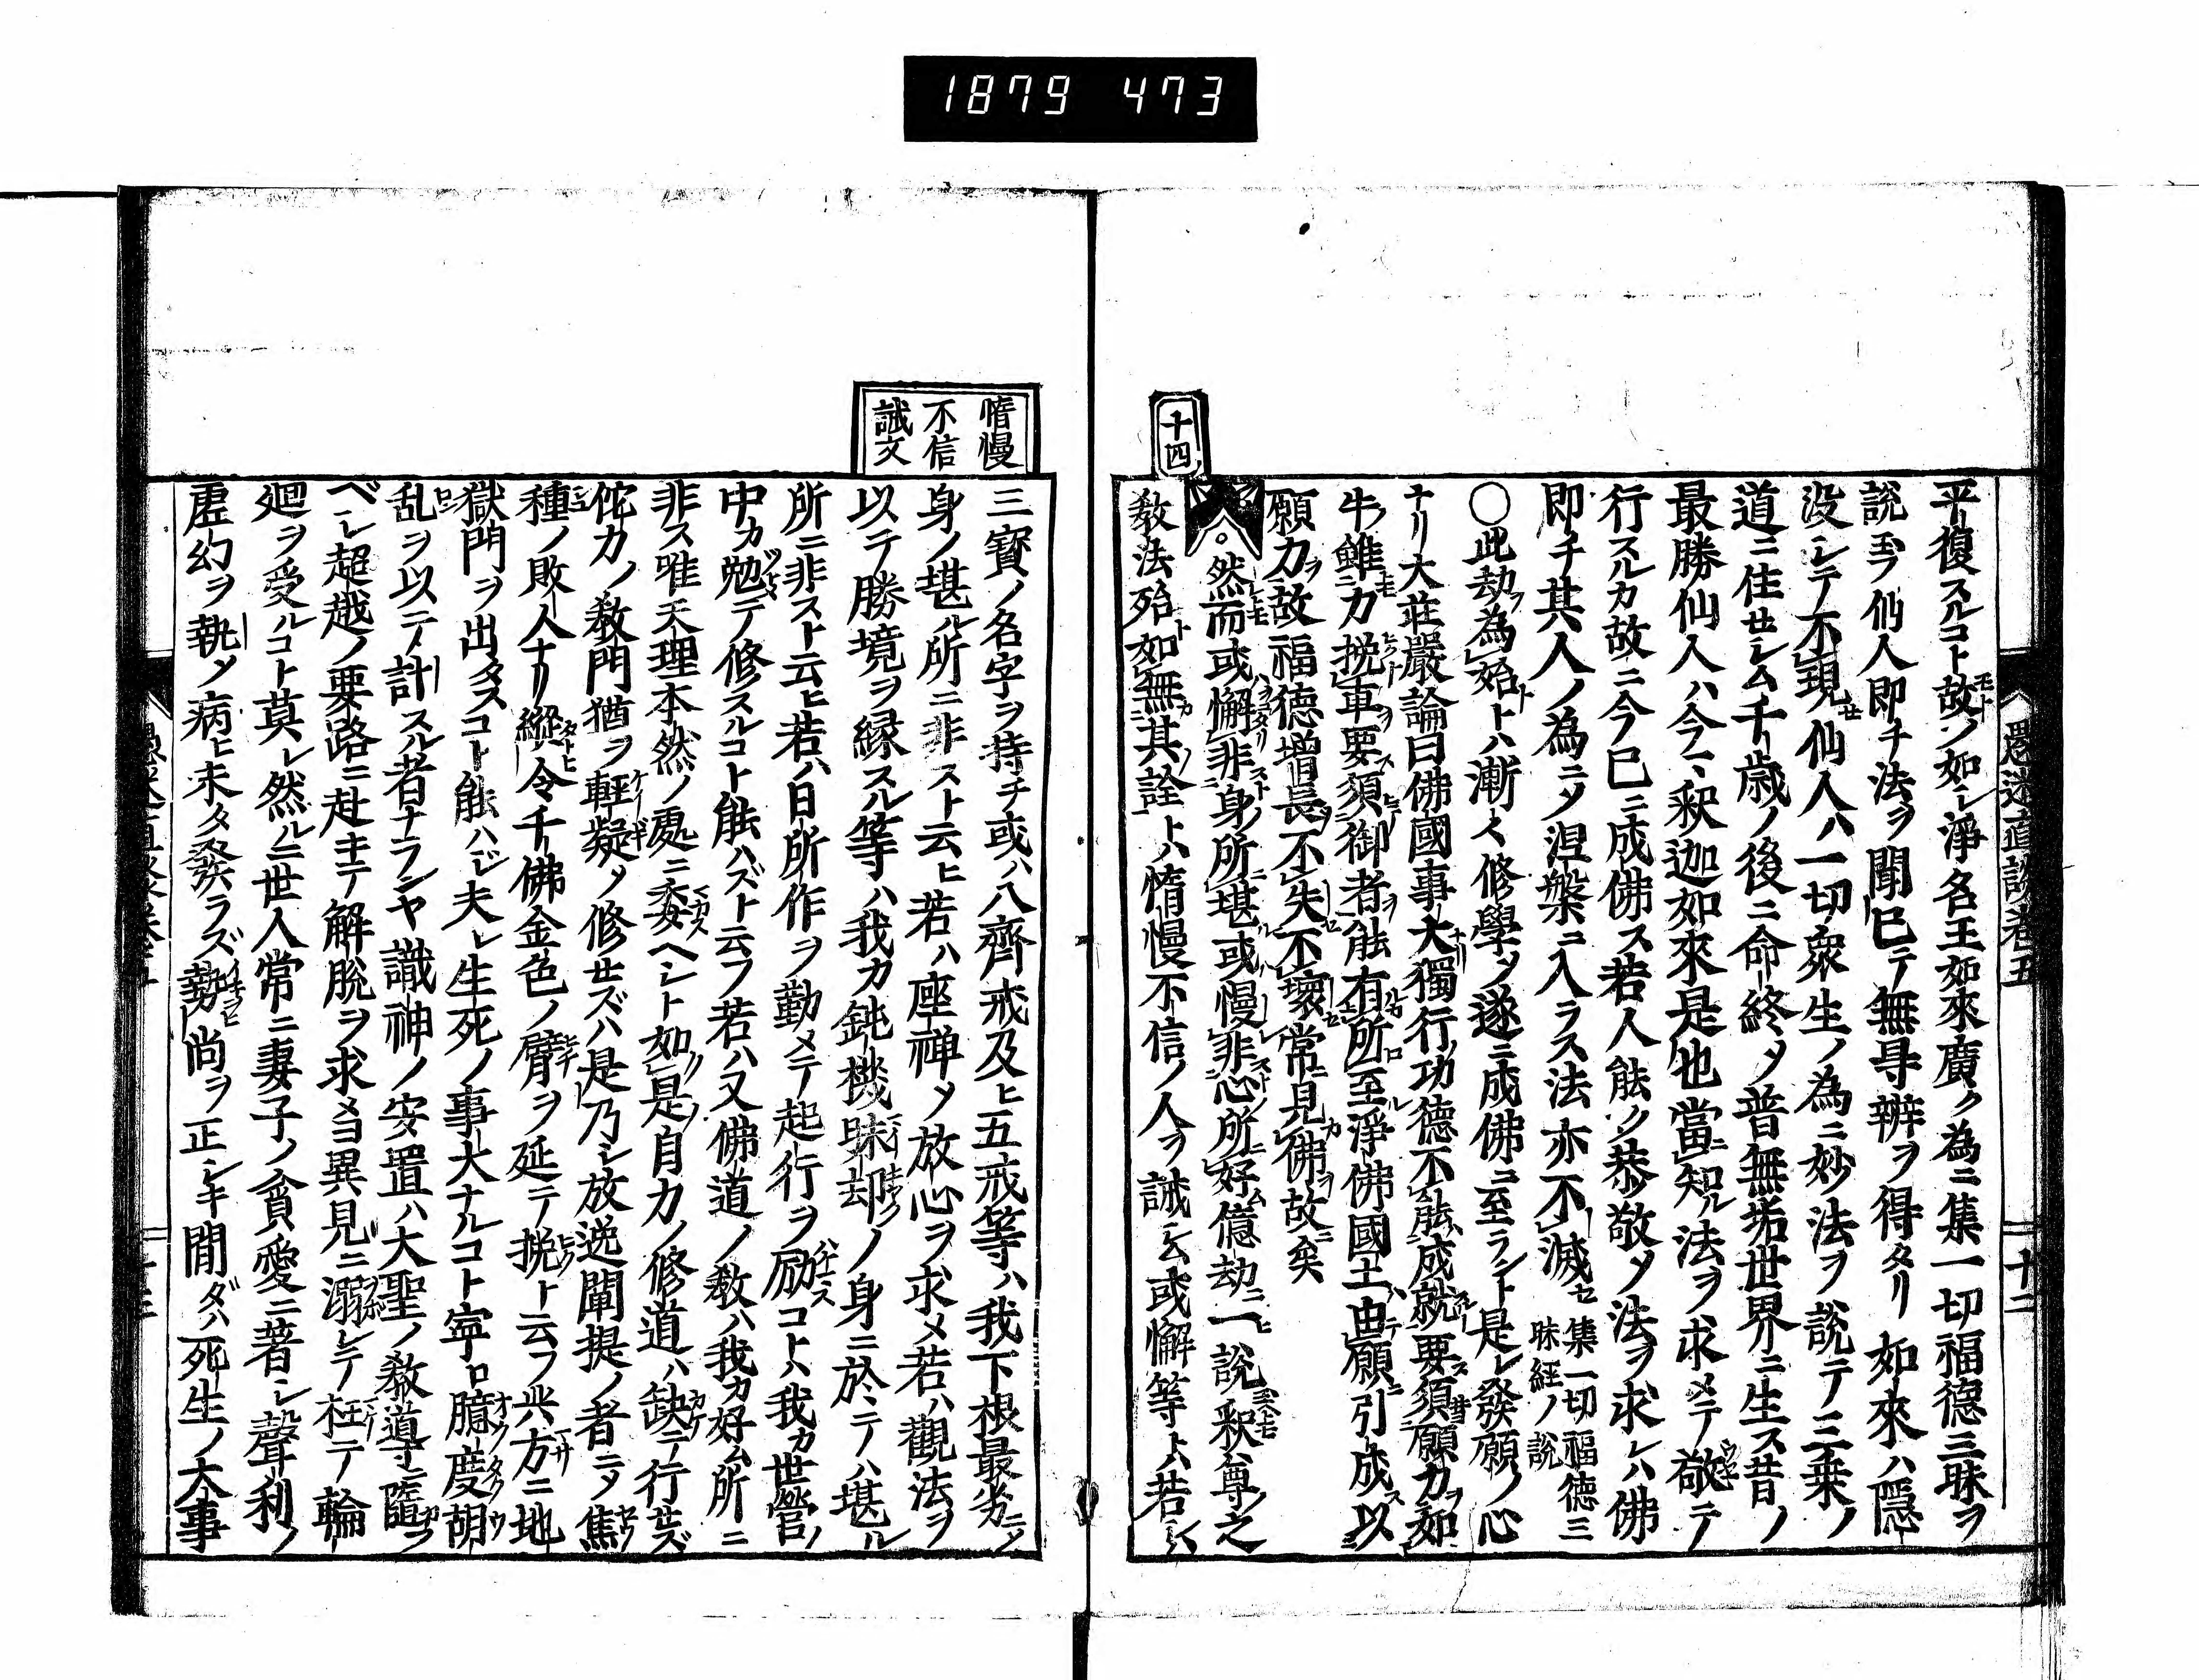 1879 473
愚迷直談巻五
十二
平復スルコト故ノ如シ淨名王如來廣ク為ニ集一切福德三昧ヲ
說玉フ仙人即チ法ヲ聞已テ無㝵辨ヲ得タリ如來ハ隱
没シテ不現仙人ハ一切衆生ノ為ニ妙法ヲ說テ三乗ノ
道ニ住セシム千歳ノ後ニ命終メ普無垢世界ニ生ス昔ノ
最勝仙人ハ今ノ釈迦如來是也當知ル法ヲ求メテ敬テ
行スルカ故ニ今已ニ成佛ス若人能ク恭敬メ法ヲ求レハ佛
即チ其人ノ為ニメ涅槃ニ入ラス法亦不滅 集一切福德三昧經ノ說
○此劫為始トハ漸々修學メ遂ニ成佛ニ至ラント是レ發願ノ心
ナリ大莊嚴論曰佛國事大獨行功德不能成就要須願力如
牛雖力挽車要須御者能有所至淨佛國土由願引成以
願力故福德増長不失不壞常見佛故矣
十四
然而或懈非身所堪或慢非心所好億劫一說釈尊之
教法殆如無其詮トハ惰慢不信ノ人ヲ誡ム或懈等トハ若ハ
惰慢
不信
誡文
三寳ノ名字ヲ持チ或ハ八齊戒及ヒ五戒等ハ我下根最劣ノ
身ノ堪ル所ニ非スト云ヒ若ハ座禅メ放心ヲ求メ若ハ觀法ヲ
以テ勝境ヲ縁スル等ハ我カ鈍機昧却ノ身ニ於テハ堪ル
所ニ非スト云ヒ若ハ日所作ヲ勤メテ起行ヲ励スコトハ我カ世營ノ
中カ勉テ修スルコト能ハズト云フ若ハ又佛道ノ教ハ我カ好ム所ニ
非ス唯天理本然ノ處ニ委ヘント如是自力ノ修道ハ缺テ行セズ
佗力ノ教門猶ヲ輕疑メ修セズハ是乃シ放逸闡提ノ者ニメ焦
種ノ敗人ナリ縱令千佛金色ノ臂ヲ延テ挽ト云フ共方ニ地
獄門ヲ出タスコト能ハジ夫レ生死ノ事大ナルコト寧ロ臆度胡
乱ヲ以テ計スル者ナランヤ識神ノ安置ハ大聖ノ教導ニ隨フ
ベシ超越ノ要路ニ赴キテ解脱ヲ求メヨ異見ニ溺レテ枉テ輪
廻ヲ受ルコト莫レ然ルニ世人常ニ妻子ノ貪愛ニ著シ聲利ノ
虚幻ヲ執メ病ヒ未タ發ラズ勢尚ヲ正シキ間ダハ死生ノ大事